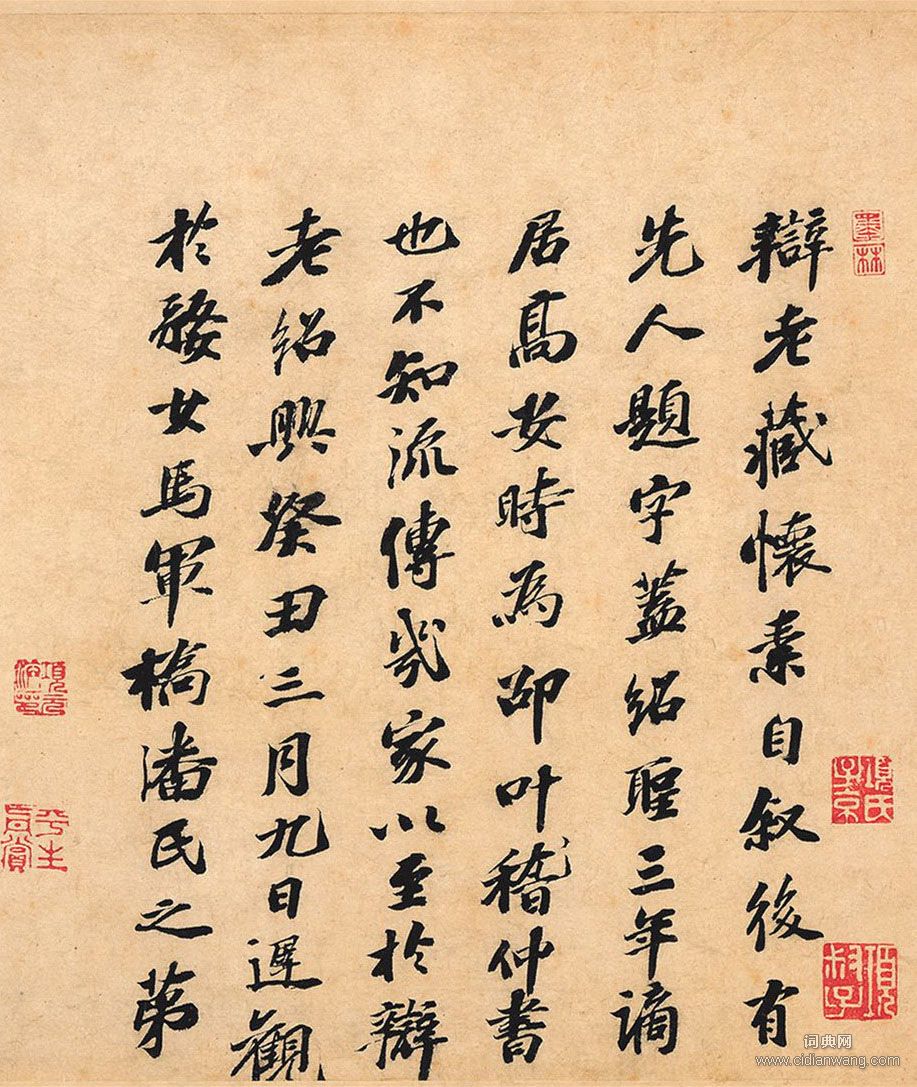 墨林
辯老藏懷素自叙後有
先人題字蓋紹聖三年謫
居高安時為邵叶稽仲書
也不知流傳幾家以至於辯
老紹興癸丑三月九日遲觀
於婺女馬軍橋潘氏之第
項氏子京
項叔子
平生真賞
词典网
www.cidianwang.com